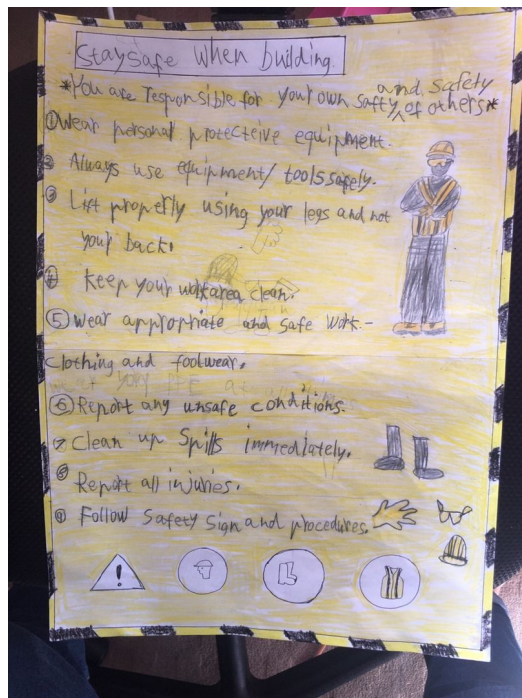 Stay safe when building.
and safety
*You are responsible for your own safty ^ of others*
① Wear personal protecteive equipment.
② Always use equipment/ tools safely.
③ Lift properly using your legs and not
your back.
④ Keep your workarea clean.
⑤ Wear appropriate and safe work-
clothing and footwear.
⑥ Report any unsafe conditions.
⑦ Clean up Spills immediately.
⑧ Report all injuries.
⑨ Follow safety sign and procedures.
!